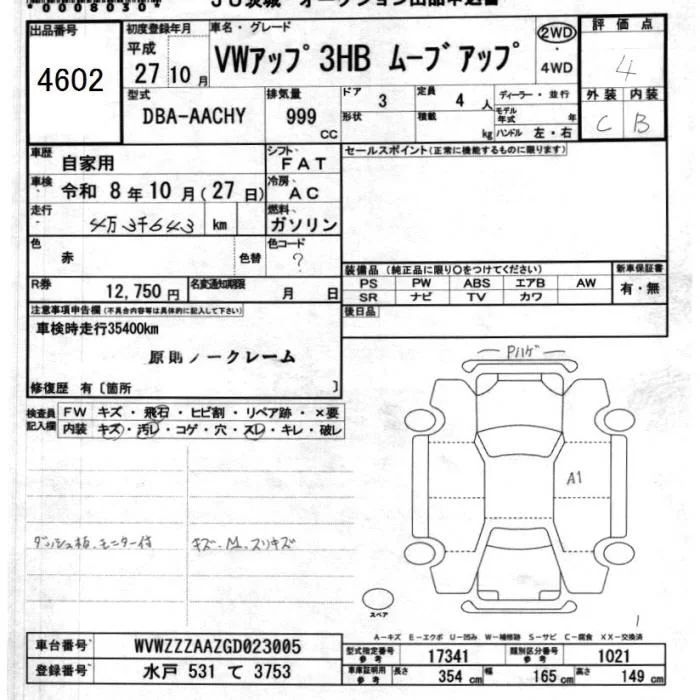 *00080307*
JU茨城 オークション出品申込書
出品番号 4602
初度登録年月 平成 27 10 月
車名・グレード VWアップ 3HB ムーブアップ
2WD ・ 4WD
評価点 4
外装 C 内装 B
型式 DBA-AACHY
排気量 999 CC
ドア 3 定員 4 人 ディーラー・並行
形状 積載 kg モデル年式 年 ハンドル 左・右
車歴 自家用
シフト FAT
セールスポイント(正常に機能するものに限ります)
車検 令和 8 年 10 月 ( 27 日)
冷房 AC
走行 4万3千643 km
燃料 ガソリン
色 赤 色替
色コード ?
装備品 (純正品に限り○をつけてください) 新車保証書
PS PW ABS エアB AW 有・無
SR ナビ TV カワ
R券 12,750 円 名変通知期限 月 日
後日品
注意事項申告欄 (不具合内容等は具体的に記入して下さい)
車検時走行35400km
原則ノークレーム
修復歴 有 〔箇所 〕
検査員記入欄
FW キズ・飛石・ヒビ割・リペア跡・×要
内装 キズ・汚レ・コゲ・穴・スレ・キレ・破レ
Pハゲ
A1
ダッシュ板、モニター付
キズ・M、スリキズ
スペア
1
A-キズ E-エクボ U-凹み W-補修跡 S-サビ C-腐食 XX-交換済
車台番号 WVWZZZAAZGD023005
型式指定番号 参考 17341 類別区分番号 参考 1021
登録番号 水戸 531 て 3753
車庫証明用 参考 長さ 354 cm 幅 165 cm 高さ 149 cm